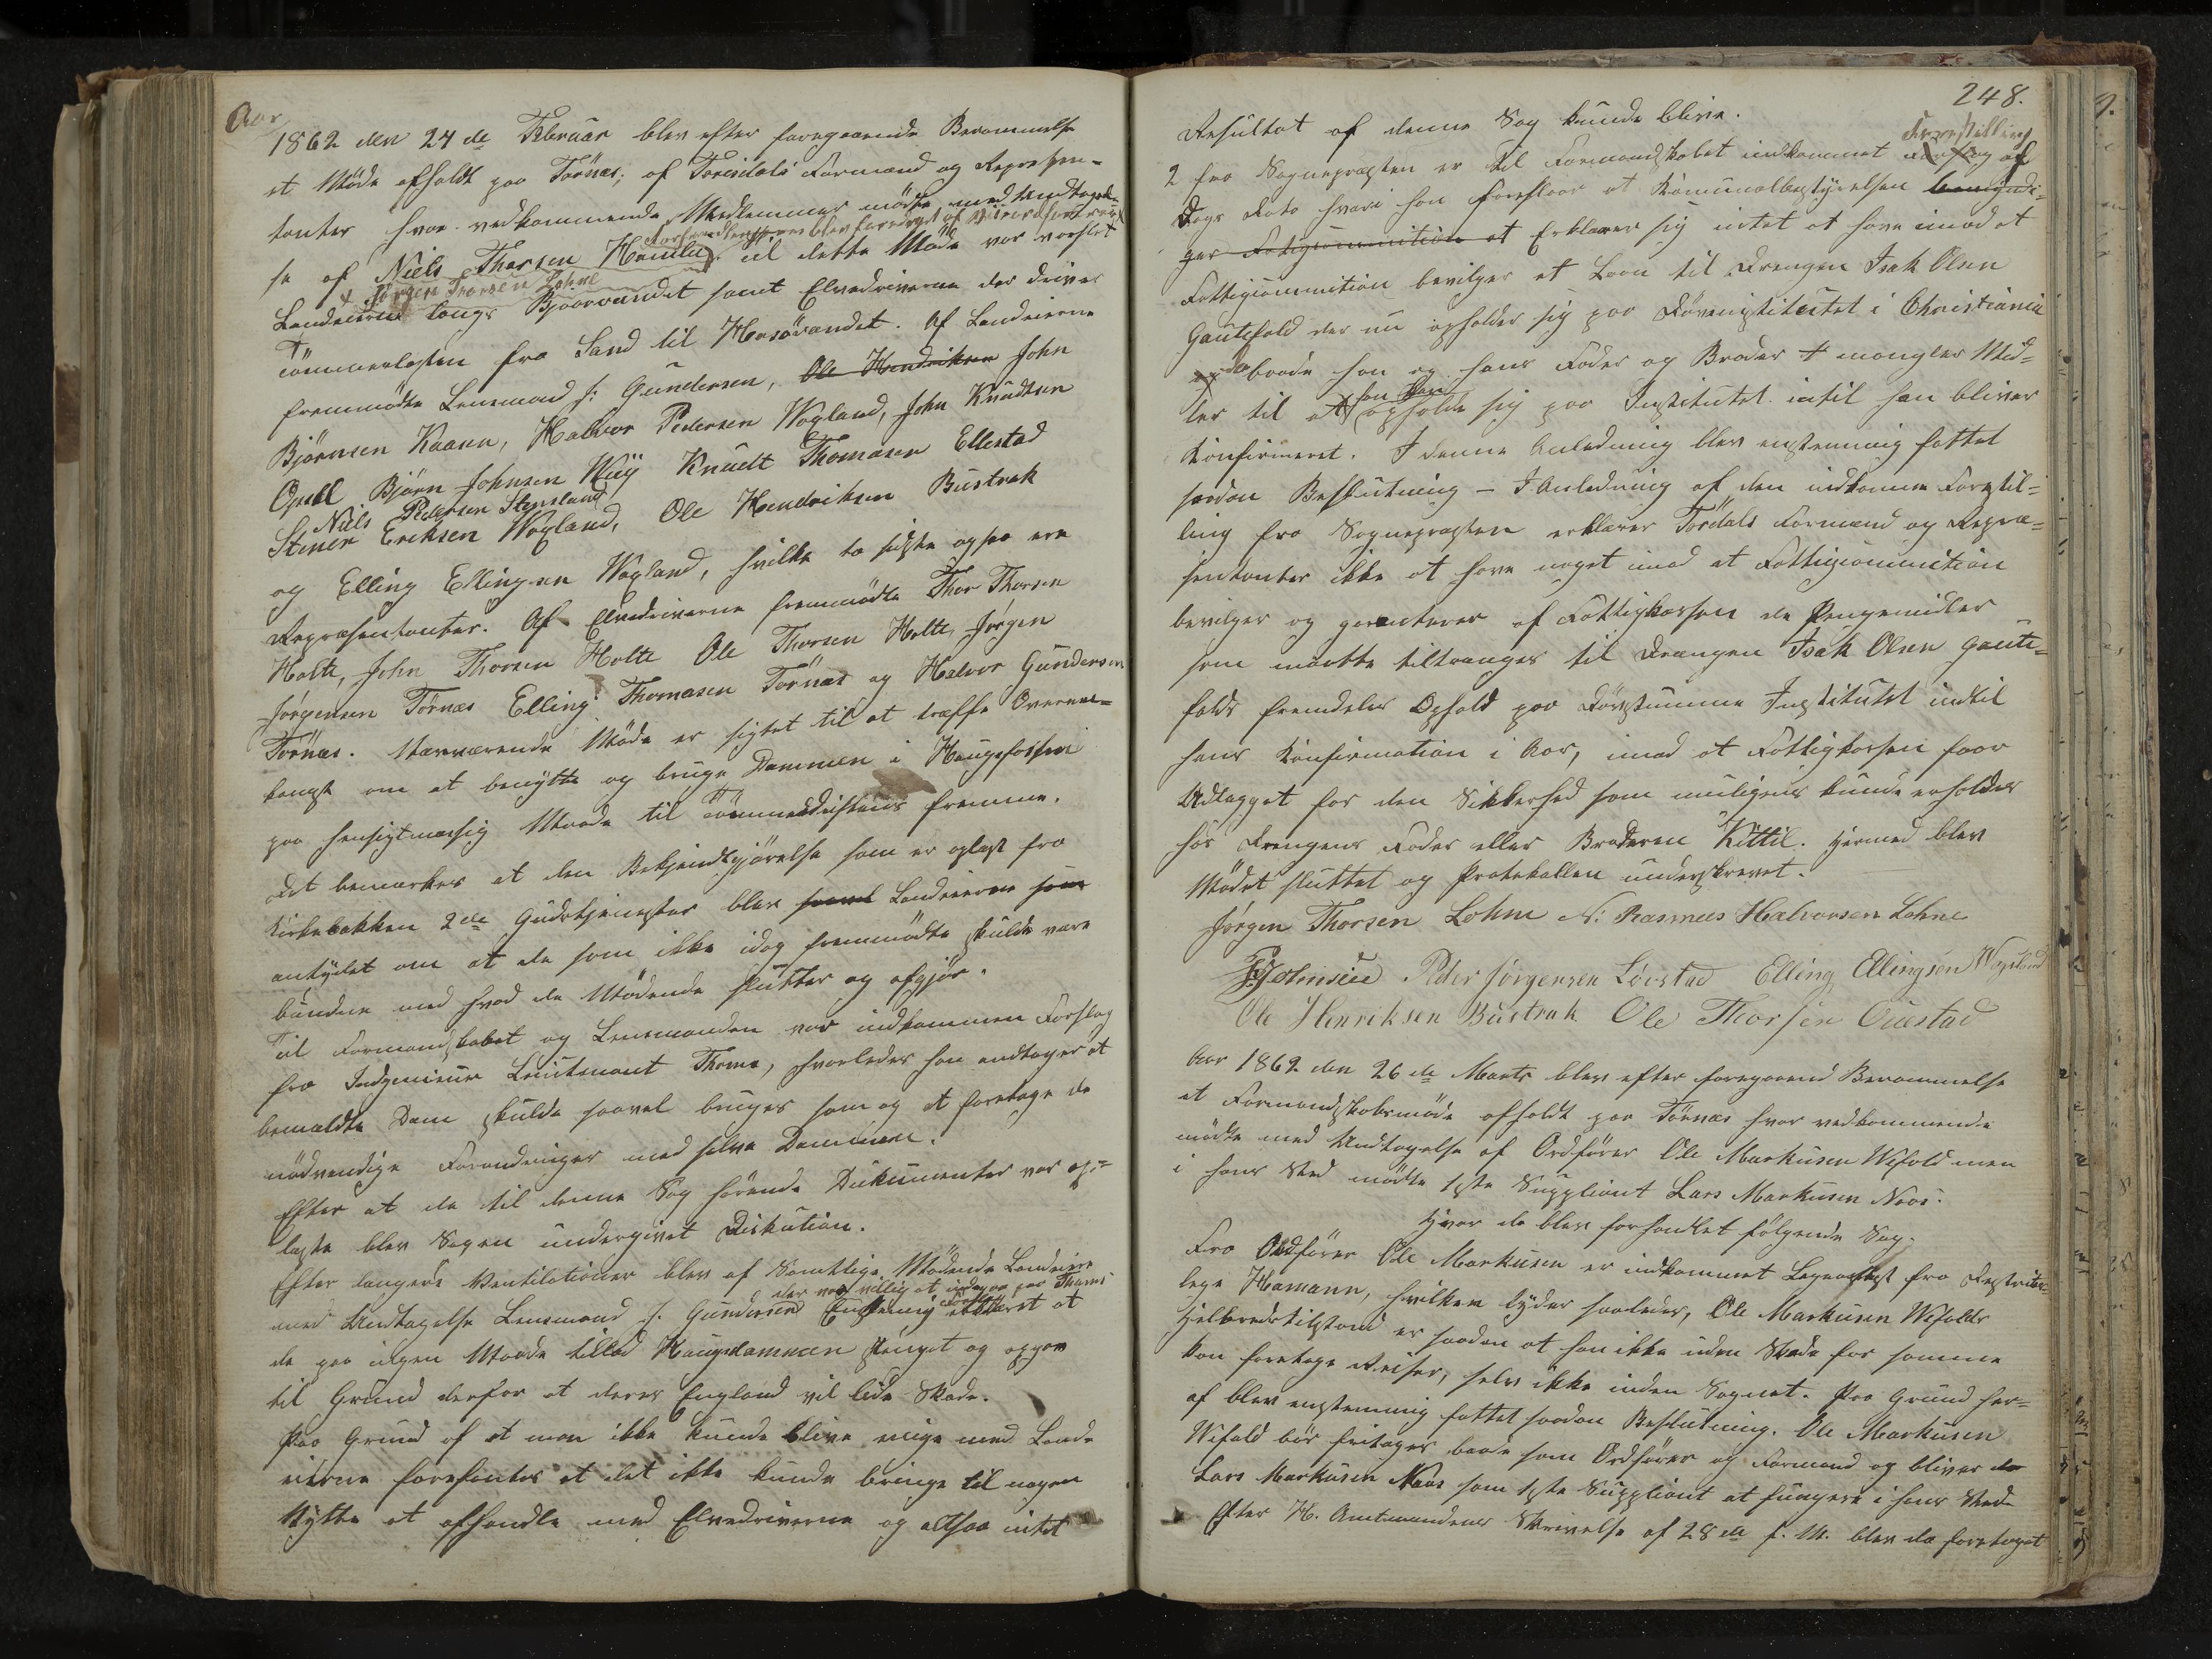 Aar
1862 den 24de Februar blev efter foregaaende Berammelse
et Møde afholdt paa Tørnæs, af Tørisdals Formænd og Repræsen-
tanter hvor vedkommende Medlemmer mødte med Undtagel-
Forhandlingerne blev bestyret af Viceordføreren
se af Niels Thorsen Hamla. Til dette Møde var varslet
x Jørgen Thorsen Lohne
Landeierne langs Bjaavandet samt Elvedriverne der driver
Tømmerlasten fra Sand til Horsøvandet. Af Landeierne
fremmødte Lensmand J: Gundersen, Ole Hendriksen John
Bjørnsen Kaasa, Halvor Pedersen Wogland, John Knudsen
Opedl Bjørn Johnsen Wiig Knudt Thomasen Ellestad
Niels Pedersen Stensland
Stener Eriksen Wogland, Ole Hendriksen Bustrak
og Elling Ellingsen Wogland, hvilke to sidste ogsaa ere
Repræsentanter. Af Elvedriverne fremmødte Thor Thorsen
Holte, John Thorsen Holte Ole Thorsen Holte, Jørgen
Jørgensen Tørnæs Elling Thomasen Tørnæs og Halvor Gundersen
Tørnæs. Nærværende Møde er sigtet til at træffe Overens-
komst om at benytte og bruge Dammen i Haugefossen
paa hensigtmæsig Maade til Tømmerdriftens fremme.
Det bemærkes at den Bekjendtgjørelse som er oplæst fra
Kirkebakken 2de Gudstjenester blev saavel Landeierne som
antydet om at de som ikke idag fremmødte skulde være
bundne med hvad de Mødende slutter og afgjør.
Til Formandskabet og Lensmanden var indkommen Forslag
fra Indgenieur Leutenant Thams, hvorledes han antager at
bemældte Dam skulde saavel bruges som og at foretage de
nødvendige Forandringer med selve Dammen.
Efter at de til denne Sag hørende Dokumenter var op-
læste blev Sagen undergivet Diskution.
Efter længere Ventilationer blev af Samtlige Mødende Landeiere
der var villig at indgaa paa Thams
med Undtagelse Lensmand J. Gundersen Enstemig erklæret at
de paa ingen Maade tillod Haugedammen stænget og opgav
til Grund derfor at deres England vil lide Skade.
Paa Grund af at man ikke kunde blive enige med Land
eierne forefantes at det ikke kunde bringe til nogen
Nytte at afhandle med Elvedriverne og altsaa intet
248.
Resultat af denne Sag kunde blive.
Forestilling
2 Fra Sognepræsten er til Formandskabet indkommet Forslag af
Dags Dato hvori han foreslaar at Komunalbestyrelsen bemyndi-
ger Fatigcommitionen at Erklærer sig intet at have imod at
Fattigcommition bevilger et Laan til Drengen Isak Olsen
Gautefald der nu opholder sig paa Døveinstitutet i Christiania
og da baade han og hans Fader og Broder + mangler Mid-
han kan
ler til at opholde sig paa Institutet intil han bliver
Konfirmeret. I denne Anledning blev enstemmig fattet
saadan Beslutning - I Anledning af den indkomne Forestil-
ling fra Sognepræsten erklærer Tørdals Formænd og Repræ-
sentanter ikke at have noget imod at Fattigcommition
bevilger og garanterer af Fattigkassen de Pengemidler
som maatte tiltrænges til Drengen Isak Olsen Gaute-
falds fremdeles Ophold paa Døvstumme Institutet indtil
hans Konfirmation i Aar, imod at Fattigkassen faar
Udlægget for den Sikkerhed som muligens kunde erholdes
hos Drengens Fader eller Broderen Kittil. Hermed blev
Mødet sluttet og Protokollen underskrevet.
Jørgen Thorsen Lohne N: Rasmus Halvorsen Lohne
Peder Jørgensen Løvstad Elling Ellingsen Wogsland
Ole Henriksen Bustrak Ole Thorsen Ouestad
Aar 1862 den 26de Marts blev efter foregaaend Berammelse
et Formandskabsmøde afholdt paa Tørnæs hvor vedkommende
mødte med Undtagelse af Ordfører Ole Markusen Wefald men
i hans Sted mødte 1ste Suppliant Lars Markusen Naas.
Hvor da blev forhandlet følgende Sag.
Fra Ordfører Ole Markusen er indkommet Lægeattest fra Distrikts-
læge Homann, hvilken lyder saaledes, Ole Markusen Wefalds
Helbredstilstand er saadan at han ikke uden Skade for samme
kan foretage Reiser, selv ikke inden Sognet. Paa Grund her-
af blev enstemmig fattet saadan Beslutning. Ole Markusen
Wefald bør fritages baade som Ordfører og Formand og bliver da
Lars Markusen Naas som 1ste Suppliant at fungere i hans Sted.
Efter H. Amtmandens Skrivelse af 28de f. M. blev da foretaget